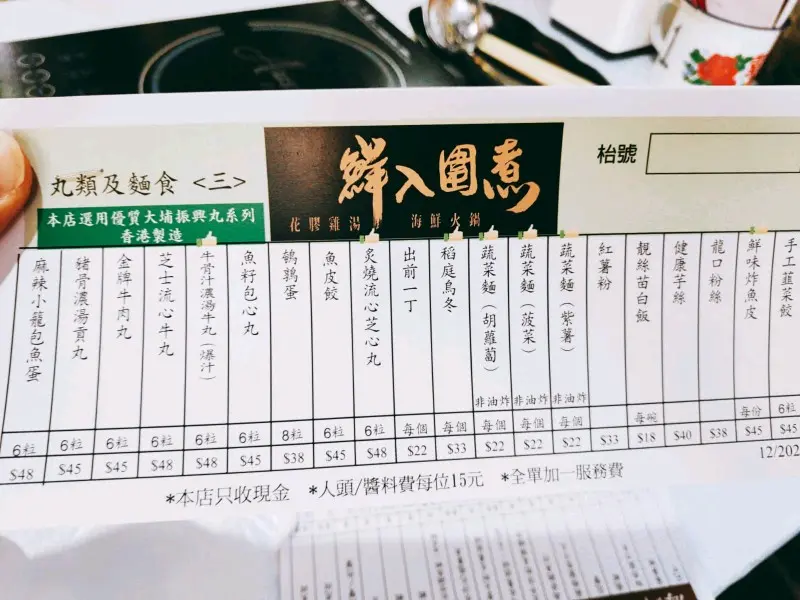 丸類及麵食 <三>
本店選用優質大埔振興丸系列
香港製造
鮮入圍煮
花膠雞湯 海鮮火鍋
枱號
麻辣小籠包魚蛋
6粒
$48
豬骨濃湯貢丸
6粒
$45
金牌牛肉丸
6粒
$45
芝士流心牛丸
6粒
$48
牛骨汁濃湯牛丸（爆汁）
6粒
$48
魚籽包心丸
6粒
$45
鵪鶉蛋
8粒
$38
魚皮餃
6粒
$45
炙燒流心芝心丸
6粒
$48
出前一丁
每個
$22
稻庭烏冬
每個
$33
蔬菜麵（胡蘿蔔）
非油炸
每個
$22
蔬菜麵（菠菜）
非油炸
每個
$22
蔬菜麵（紫薯）
非油炸
每個
$22
紅薯粉
$33
靚絲苗白飯
每碗
$18
健康芋絲
$40
龍口粉絲
$38
鮮味炸魚皮
每份
$45
手工韮菜餃
6粒
$45
12/202
*本店只收現金 *人頭/醬料費每位15元 *全單加一服務費